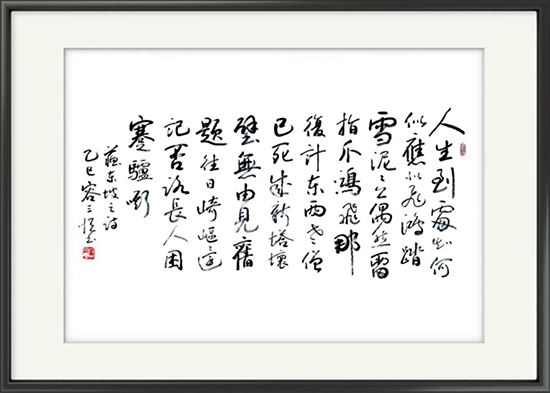 人生到處知何
似應似飛鴻踏
雪泥〻上偶然留
指爪鴻飛那
復計东西老僧
已死成新塔壞
壁無由見舊
題往日崎嶇還
記否路長人困
蹇驢嘶
蘇东坡之詩
乙巳容三